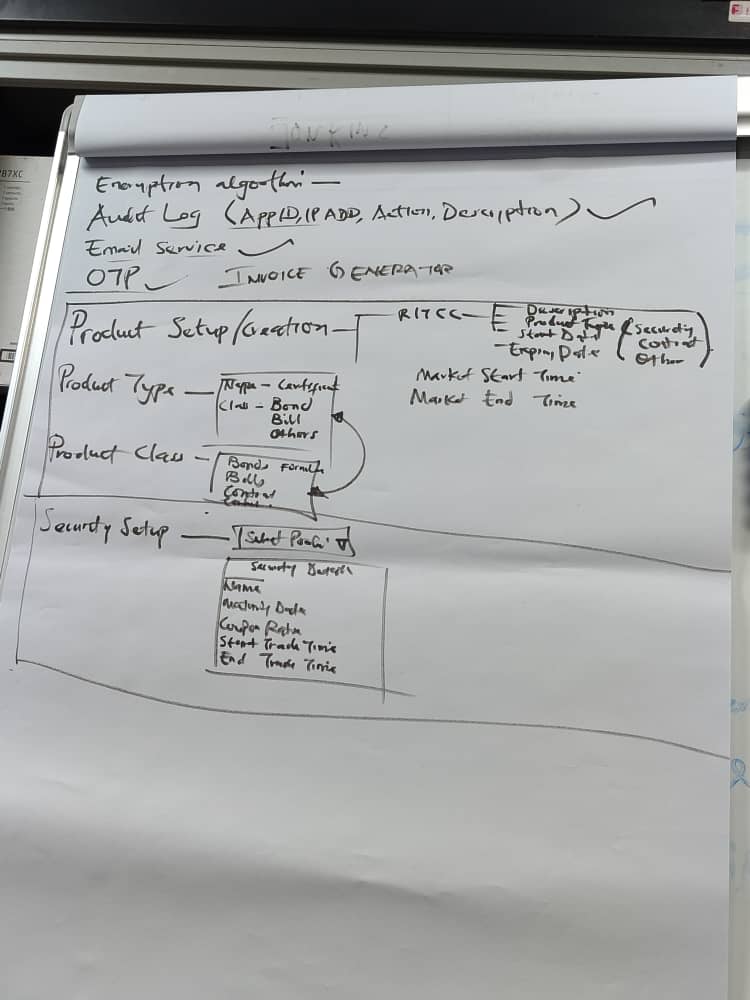 Encryption algorithm —
Audit Log (App ID, IP ADD, Action, Description)
Email Service
OTP INVOICE GENERATOR
Product Setup/Creation — RITCC — Description
Product Type (Security
Start Date Contract
Expiry Date Other)
Market Start Time
Market End Time
Product Type —
Class - Bond
Bill
Others
Product Class — Bonds Formula
Bills
Contract
Security Setup — Select
Security
Name
Maturity Date
Coupon
Start Trade Time
End Trade Time